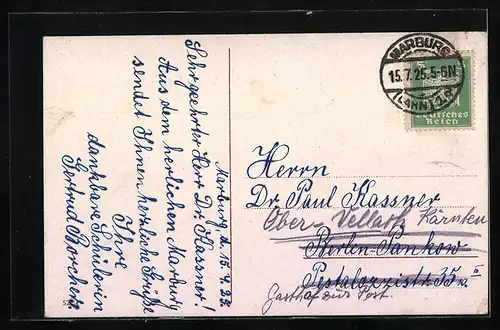 Marburg, d. 15.7.25.
Sehr geehrter Herr Dr. Kassner!
Aus dem herrlichen Marburg
sendet Ihnen herzliche Grüße
Ihre
dankbare Schülerin
Gertrud Borchert
MARBURG
15.7.25.5-6N
(LAHN)
5
Deutsches
Reich
Herrn
Dr. Paul Kassner
Ober-Vellach Kärnten
Berlin-Pankow
Pestalozzistr. 35 II
Gasthof zur Post.